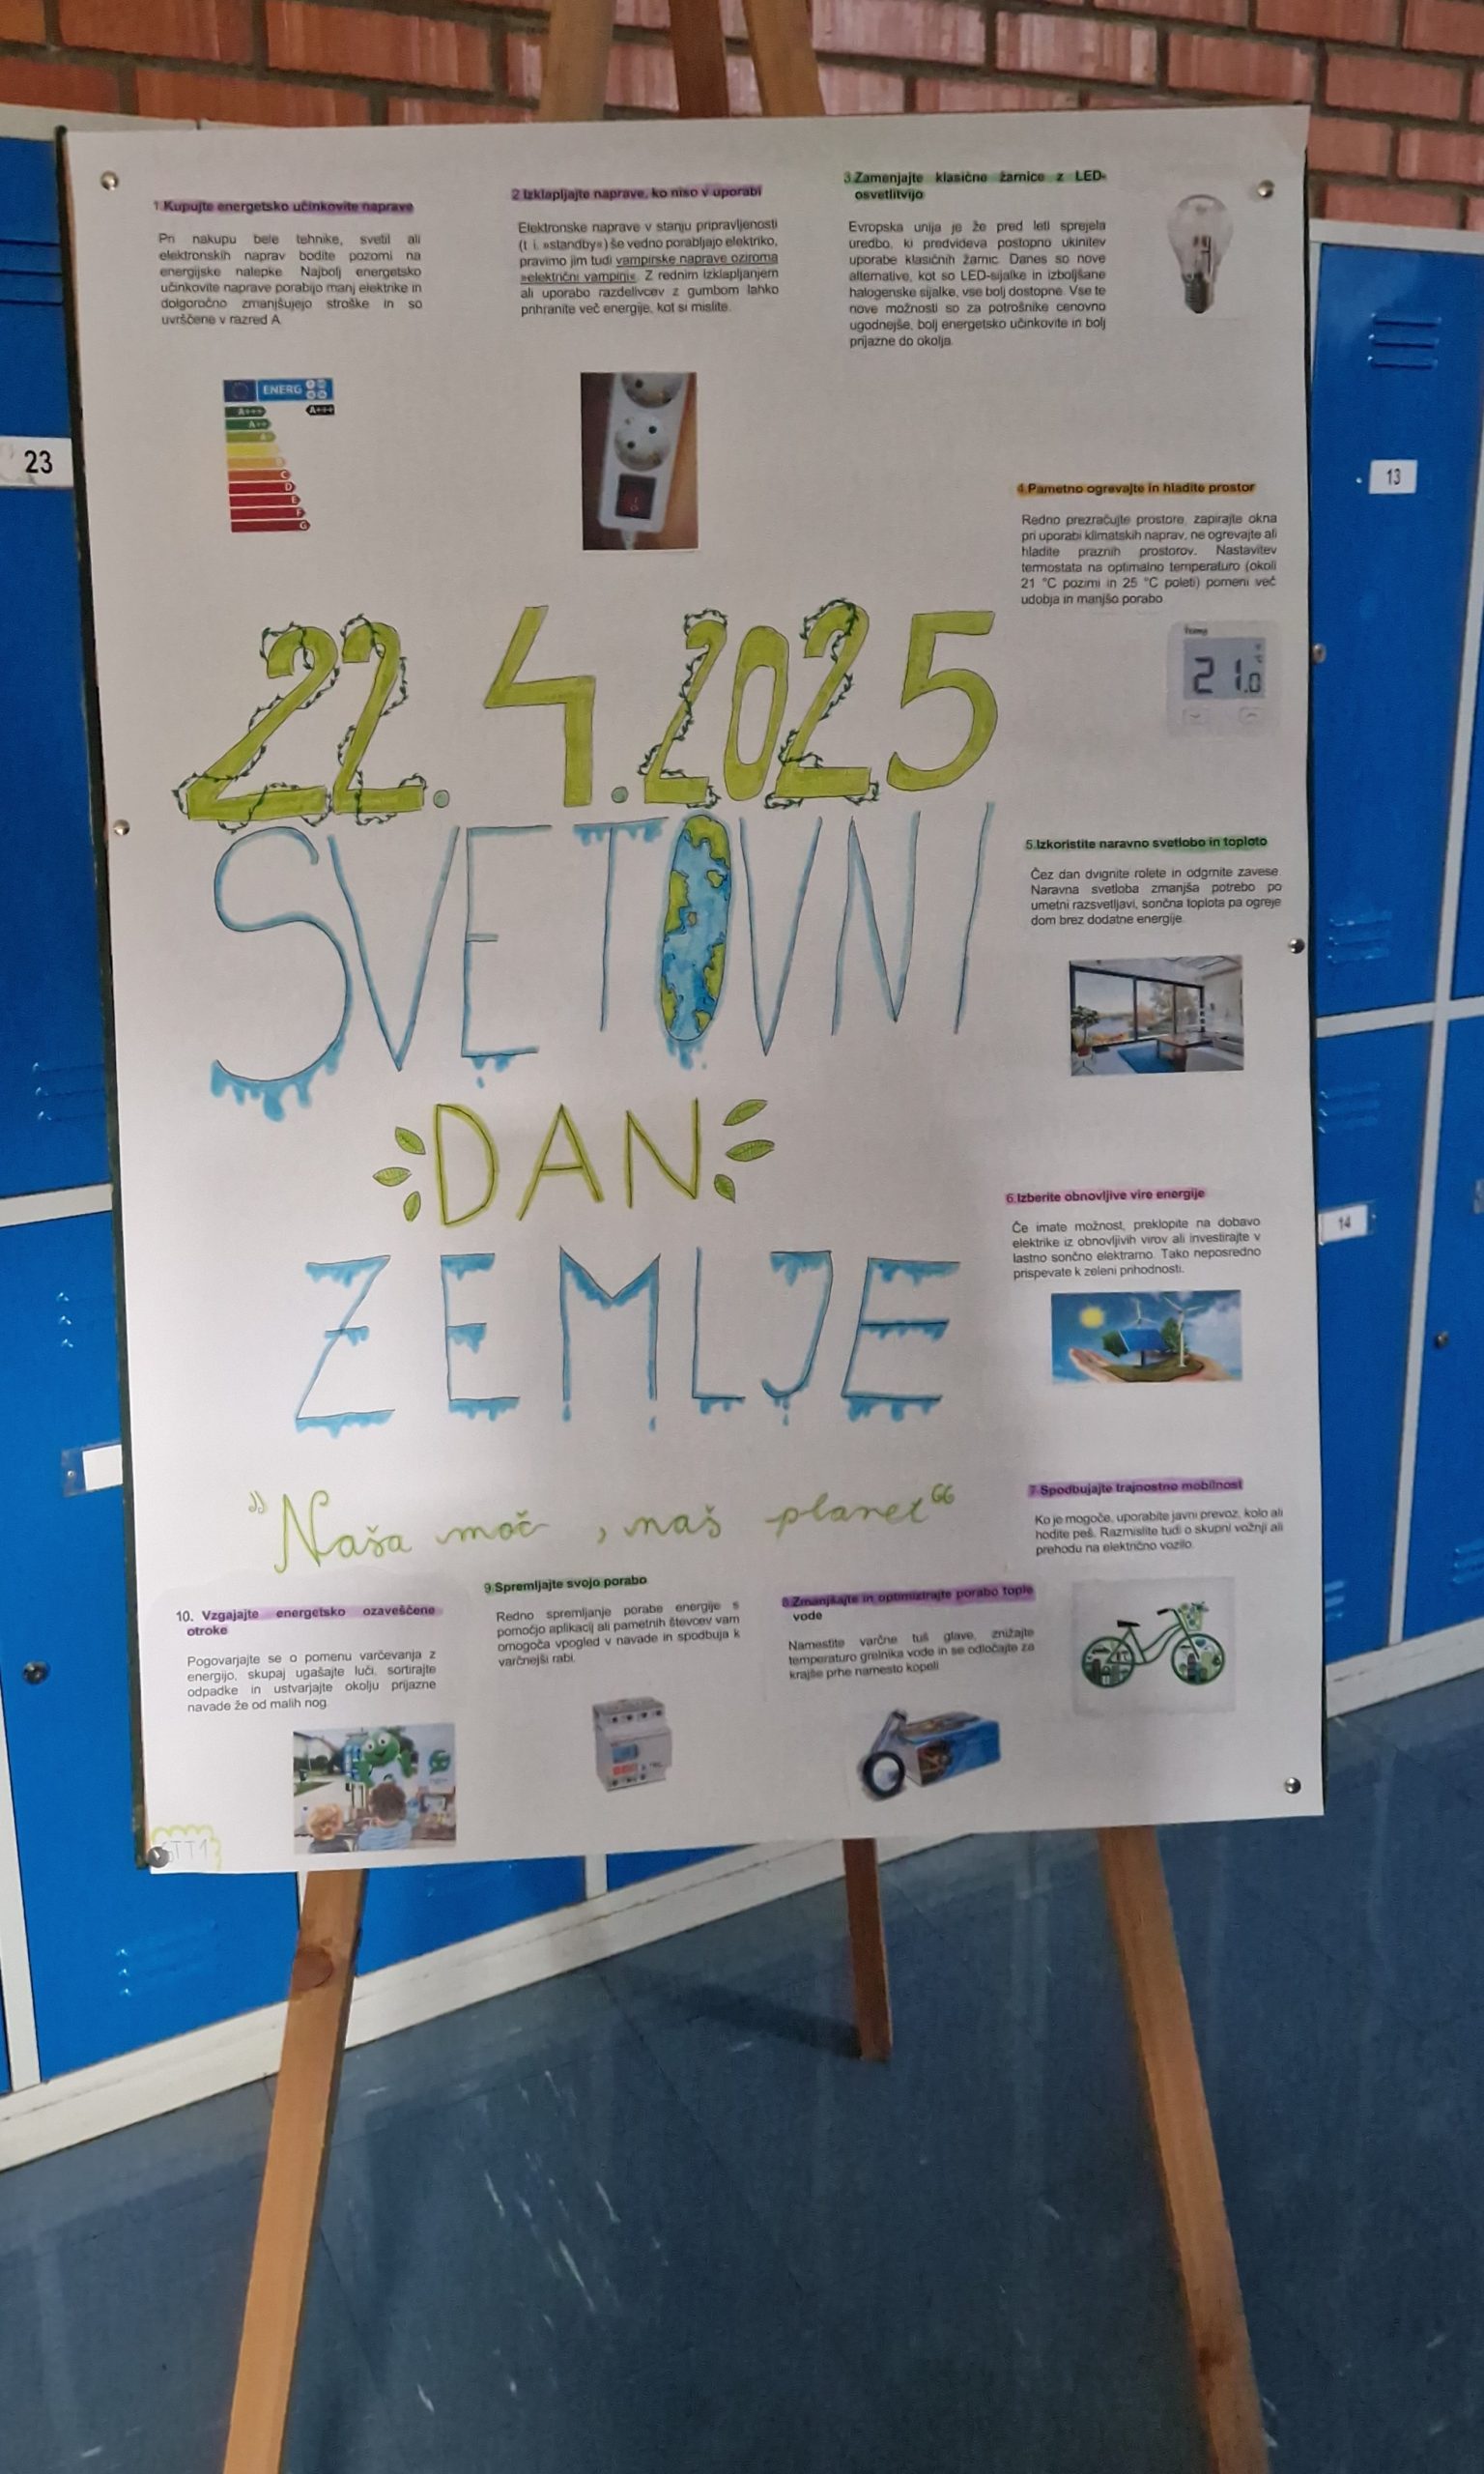 1.Kupujte energetsko učinkovite naprave
Pri nakupu bele tehnike, svetil ali
elektronskih naprav bodite pozorni na
energijske nalepke. Najbolj energetsko
učinkovite naprave porabijo manj elektrike in
dolgoročno zmanjšujejo stroške in so
uvrščene v razred A.
ENERG
A+++
A+++
A++
A+
C
D
E
F
G
2.Izklapljajte naprave, ko niso v uporabi
Elektronske naprave v stanju pripravljenosti
(t. i. »standby«) še vedno porabljajo elektriko,
pravimo jim tudi vampirske naprave oziroma
»električni vampirji«. Z rednim izklapljanjem
ali uporabo razdelivcev z gumbom lahko
prihranite več energije, kot si mislite.
3.Zamenjajte klasične žarnice z LED-
osvetlitvijo
Evropska unija je že pred leti sprejela
uredbo, ki predvideva postopno ukinitev
uporabe klasičnih žarnic. Danes so nove
alternative, kot so LED-sijalke in izboljšane
halogenske sijalke, vse bolj dostopne. Vse te
nove možnosti so za potrošnike cenovno
ugodnejše, bolj energetsko učinkovite in bolj
prijazne do okolja.
4.Pametno ogrevajte in hladite prostor
Redno prezračujte prostore, zapirajte okna
pri uporabi klimatskih naprav, ne ogrevajte ali
hladite praznih prostorov. Nastavitev
termostata na optimalno temperaturo (okoli
21 °C pozimi in 25 °C poleti) pomeni več
udobja in manjšo porabo.
21.0
22.4.2025
SVETOVNI
DAN
ZEMLJE
"Naša moč, naš planet"
5.Izkoristite naravno svetlobo in toploto
Čez dan dvignite rolete in odgrnite zavese.
Naravna svetloba zmanjša potrebo po
umetni razsvetljavi, sončna toplota pa ogreje
dom brez dodatne energije.
6.Izberite obnovljive vire energije
Če imate možnost, preklopite na dobavo
elektrike iz obnovljivih virov ali investirajte v
lastno sončno elektrarno. Tako neposredno
prispevate k zeleni prihodnosti.
7.Spodbujajte trajnostno mobilnost
Ko je mogoče, uporabite javni prevoz, kolo ali
hodite peš. Razmislite tudi o skupni vožnji ali
prehodu na električno vozilo.
8.Zmanjšajte in optimizirajte porabo tople
vode
Namestite varčne tuš glave, znižajte
temperaturo grelnika vode in se odločajte za
krajše prhe namesto kopeli.
9.Spremljajte svojo porabo
Redno spremljanje porabe energije s
pomočjo aplikacij ali pametnih števcev vam
omogoča vpogled v navade in spodbuja k
varčnejši rabi.
10. Vzgajajte energetsko ozaveščene
otroke
Pogovarjajte se o pomenu varčevanja z
energijo, skupaj ugašajte luči, sortirajte
odpadke in ustvarjajte okolju prijazne
navade že od malih nog.
23
13
14